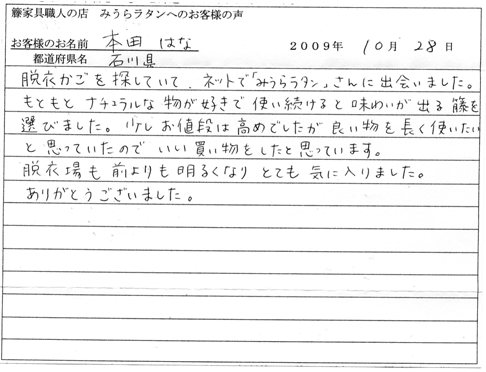 籐家具職人の店 みうらラタンへのお客様の声
お客様のお名前 本田 はな 2009年 10月 28日
都道府県名 石川県
脱衣かごを探していて、ネットで「みうらラタン」さんに出会いました。
もともと ナチュラルな物が好きで 使い続けると味わいが出る籐を
選びました。少しお値段は高めでしたが良い物を長く使いたい
と思っていたので いい買い物をしたと思っています。
脱衣場も前よりも明るくなり とても気に入りました。
ありがとうございました。